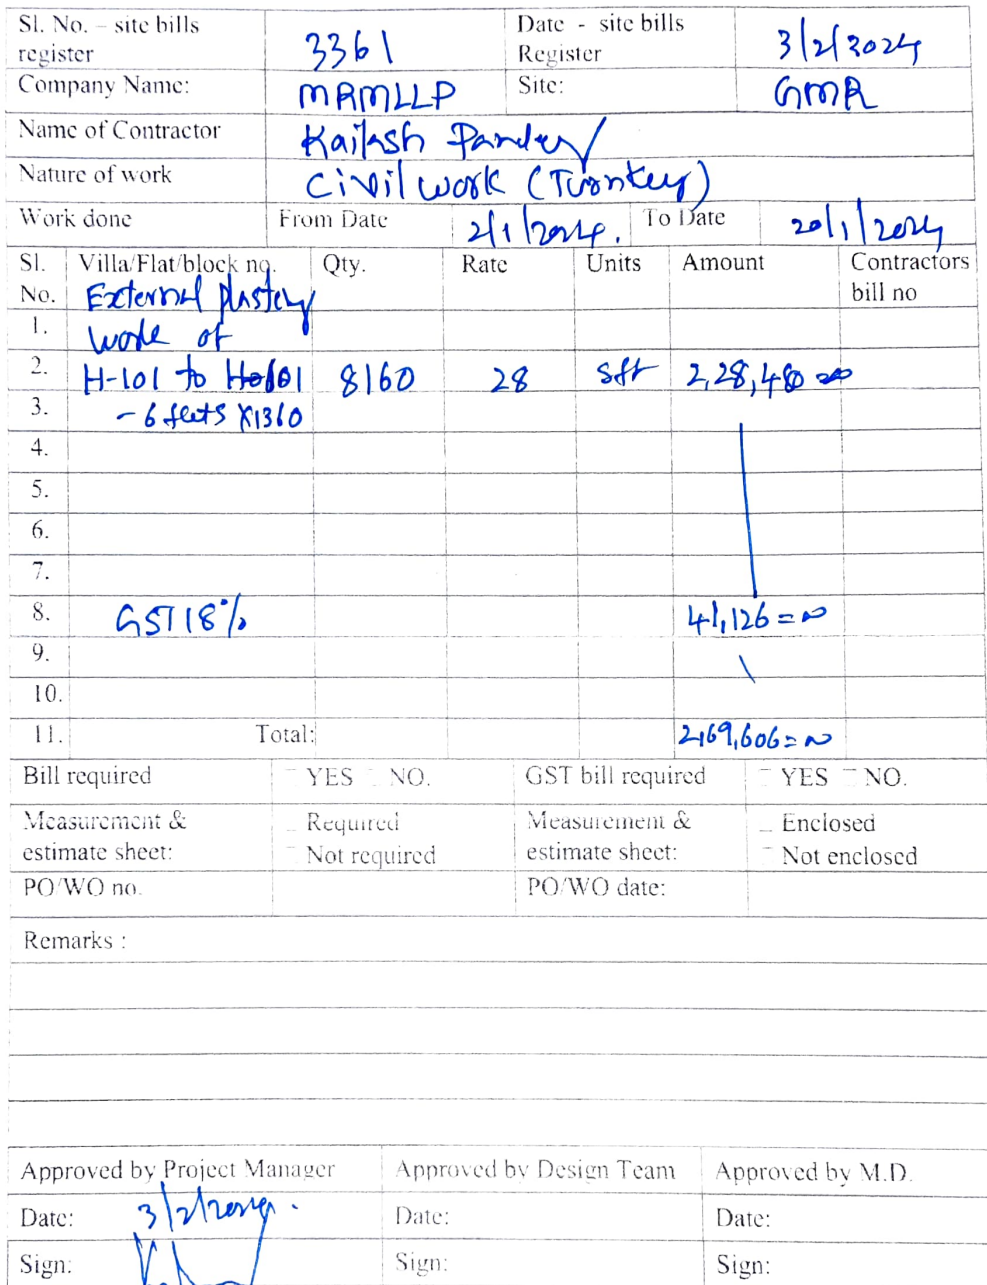 Sl. No. – site bills register 3361 Date - site bills Register 3/2/2024
Company Name: MRMLLP Site: GMR
Name of Contractor Kailash Pandey
Nature of work Civil work (Turnkey)
Work done From Date 2/1/2024. To Date 20/1/2024
Sl. No. Villa/Flat/block no. Qty. Rate Units Amount Contractors bill no
External plastery
1. work of
2. H-101 to 8160 28 sft 2,28,480
3. - 6 flats X1360
4.
5.
6.
7.
8. GST 18% 41,126=00
9.
10.
11. Total: 2,69,606=00
Bill required YES NO. GST bill required YES NO.
Measurement & estimate sheet: Required Not required Measurement & estimate sheet: Enclosed Not enclosed
PO/WO no. PO/WO date:
Remarks :
Approved by Project Manager Approved by Design Team Approved by M.D.
Date: 3/2/2024. Date: Date:
Sign: Sign: Sign: